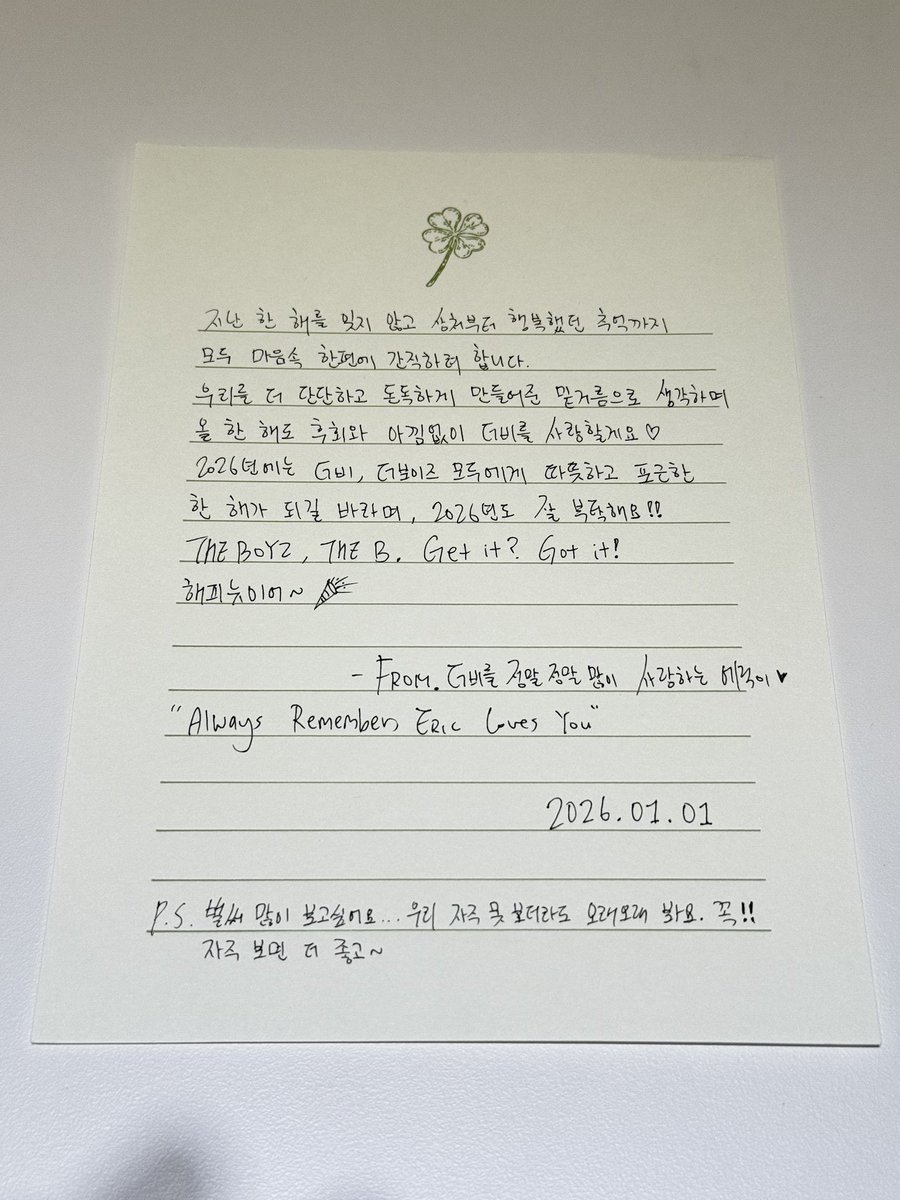 지난 한 해를 잊지 않고 상처부터 행복했던 추억까지
모두 마음속 한편에 간직하려 합니다.
우리를 더 단단하고 돈독하게 만들어준 밑거름으로 생각하며
올 한 해도 후회와 아낌없이 더비를 사랑할게요♡
2026년에는 더비, 더보이즈 모두에게 따뜻하고 포근한
한 해가 되길 바라며, 2026년도 잘 부탁해요!!
THE BOYZ, THE B. Get it? Got it!
해피뉴이어~
- FROM. 더비를 정말 정말 많이 사랑하는 에릭이♥
"Always Remember, ERIC Loves You"
2026.01.01
P.S. 벌써 많이 보고싶어요... 우리 자주 못 보더라도 오래오래 봐요. 꼭!!
자주 보면 더 좋고~